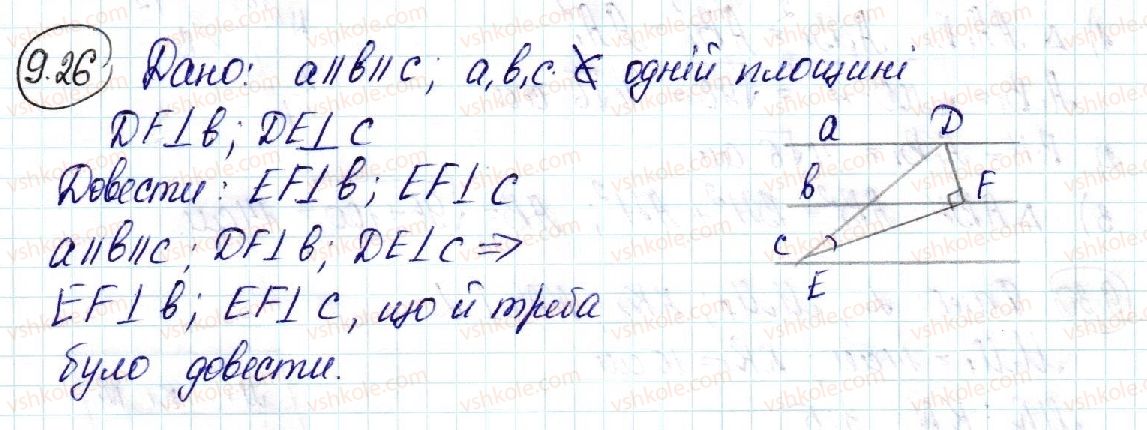 9.26 Дано: a∥b∥c; a, b, c ∉ одній площині
DF⊥b; DE⊥c
Довести: EF⊥b; EF⊥c
a∥b∥c; DF⊥b; DE⊥c ⇒
EF⊥b; EF⊥c, що й треба
було довести.
a D
b F
c
E